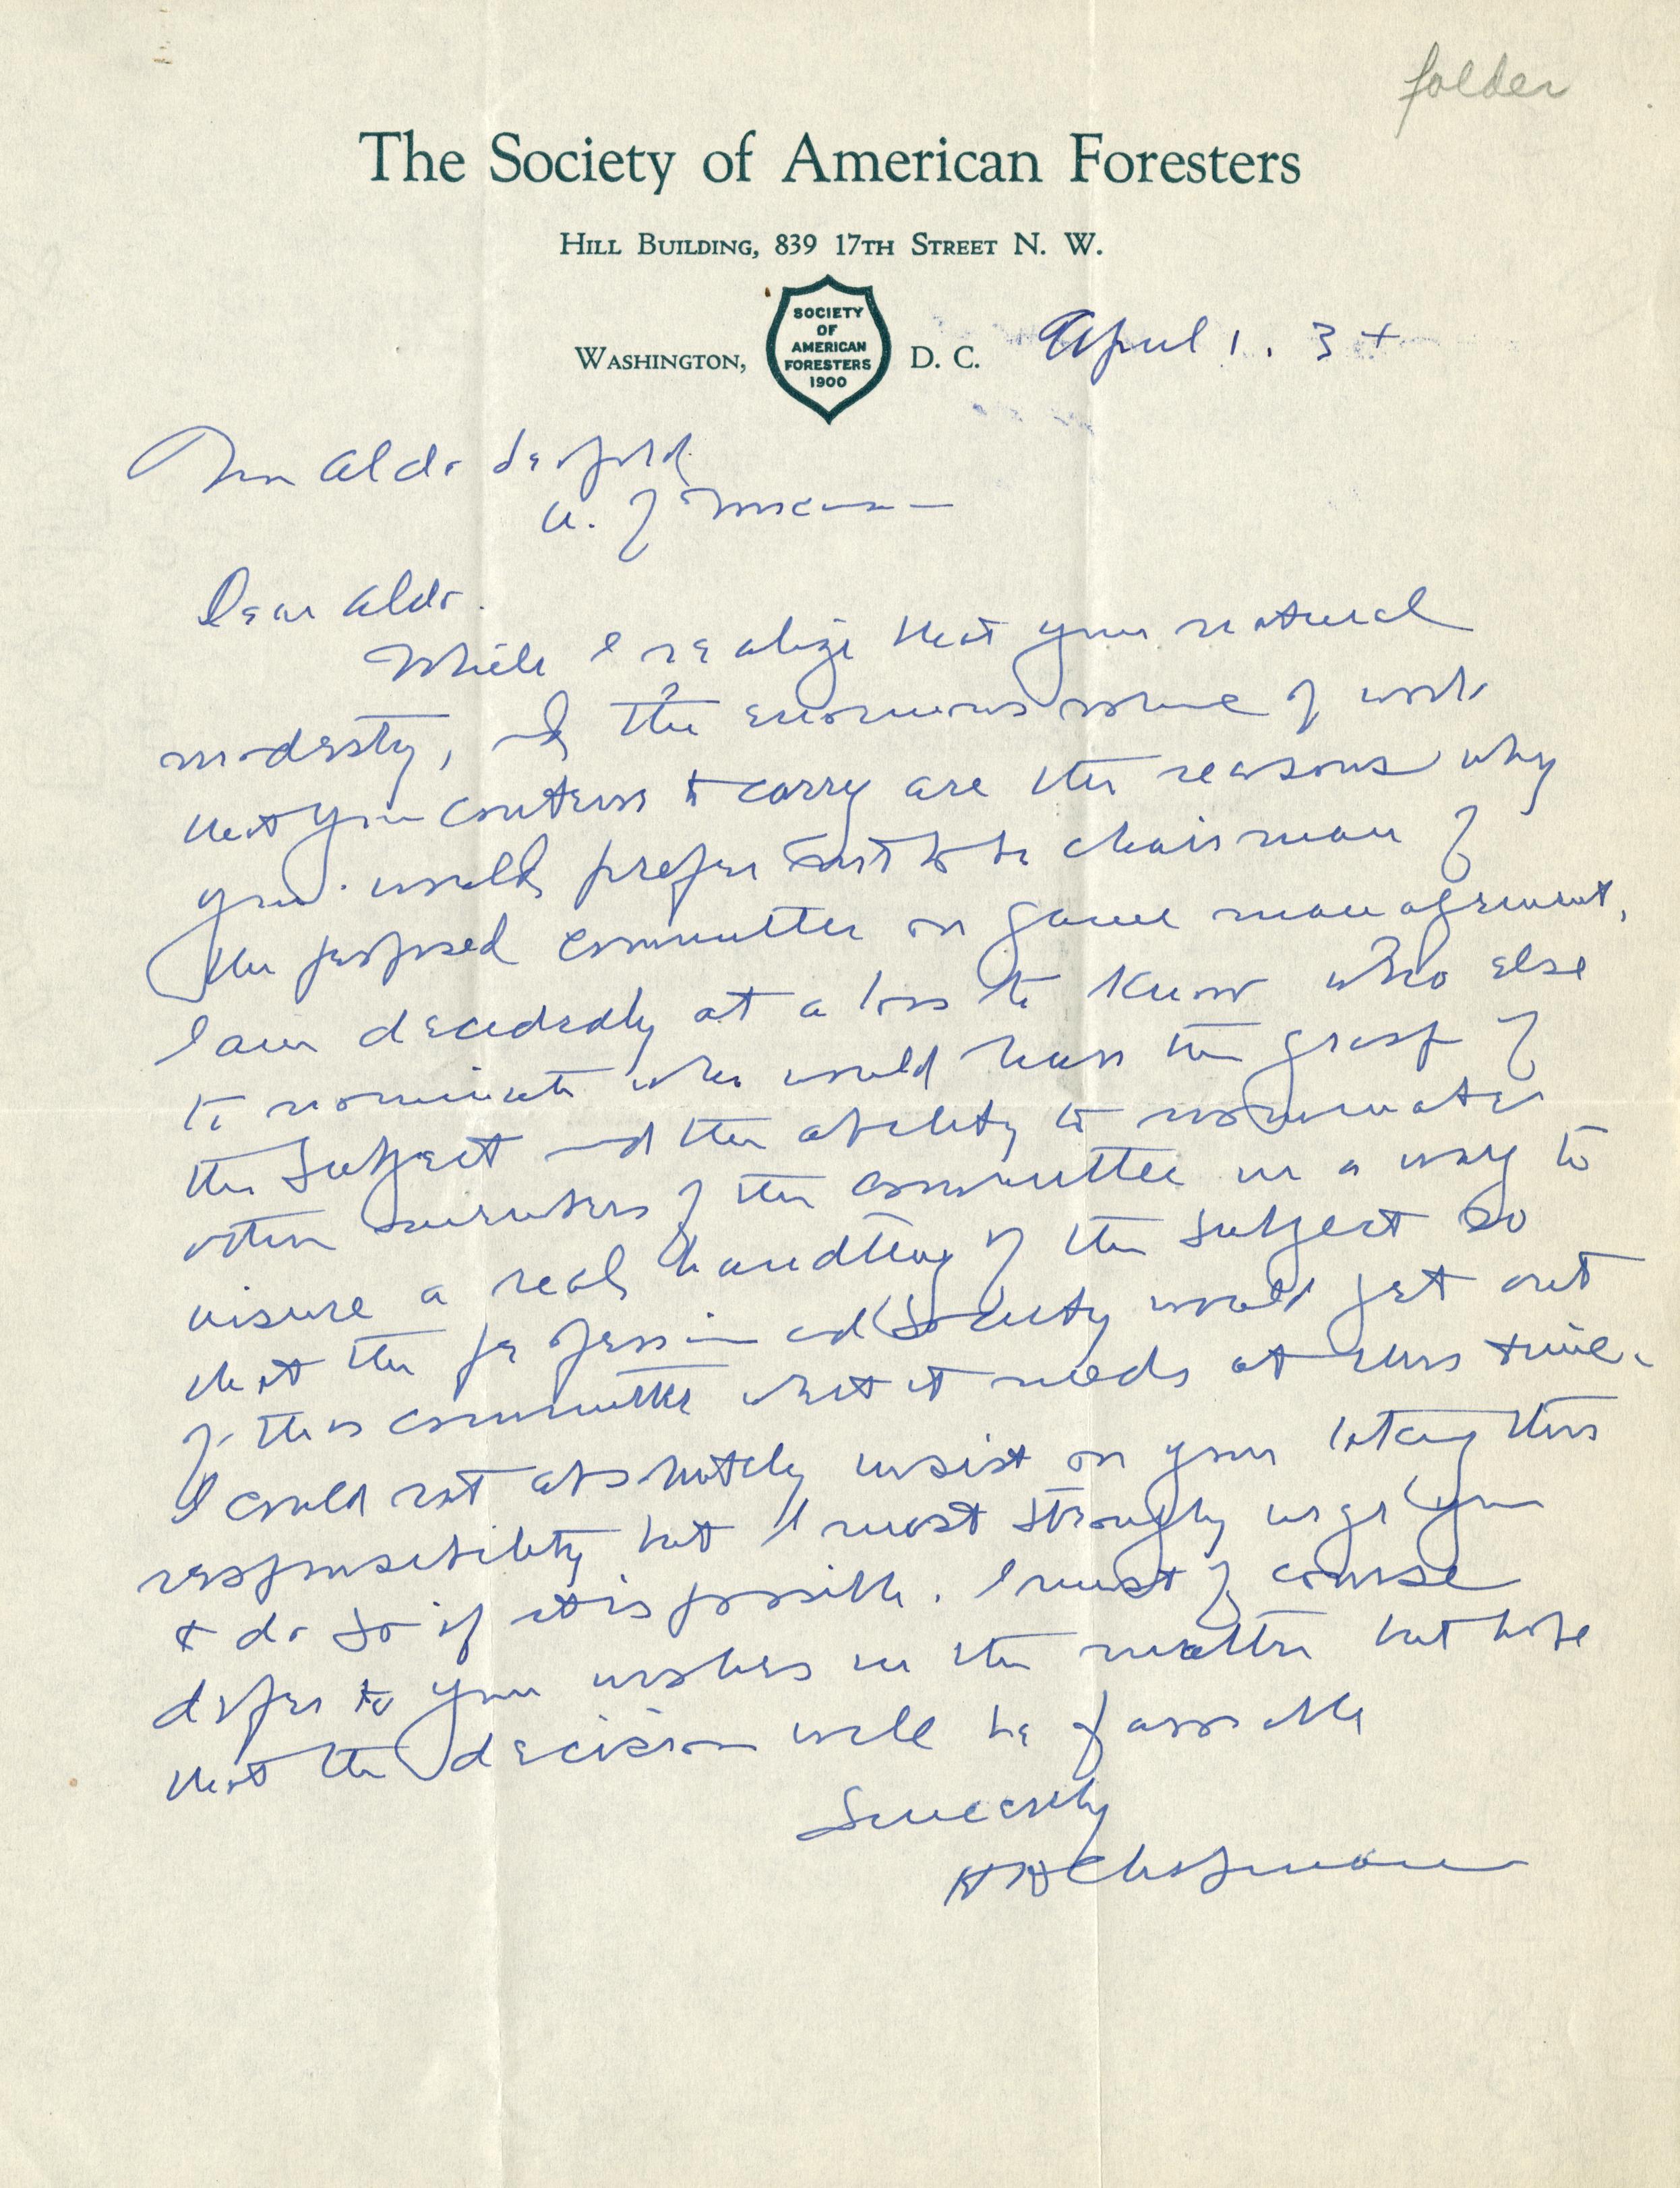 folder
The Society of American Foresters
Hill Building, 839 17th Street N. W.
SOCIETY
OF
AMERICAN
FORESTERS
1900
Washington, D. C. April 1. 34
Mr Aldo Leopold
U. of Wisconsin
Dear Aldo.
While I realize that your natural
modesty, and the enormous volume of work
that you contrive to carry are the reasons why
you would prefer not to be chairman of
the proposed committee on game management,
I am decidedly at a loss to know who else
to nominate who would have the grasp of
the subject and the ability to nominate
other members of the committee in a way to
insure a real handling of the subject so
that the profession and Society would get out
of this committee what it needs at this time.
I could not absolutely insist on your taking this
responsibility but I most strongly urge you
to do so if it is possible. I must of course
defer to your wishes in the matter but hope
that the decision will be favorable
Sincerely
H H Chapman